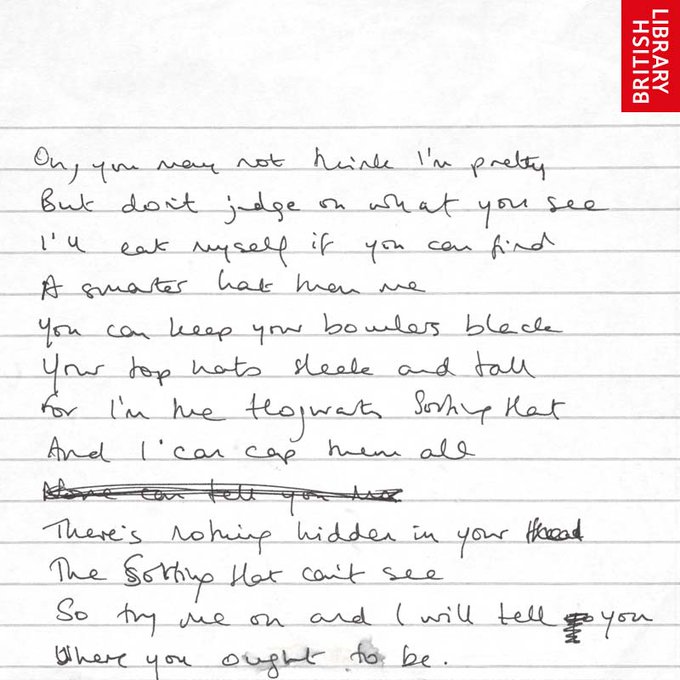 BRITISH
LIBRARY
Oh, you may not think I'm pretty
But don't judge on what you see
I'll eat myself if you can find
A smarter hat than me
You can keep your bowlers black
Your top hats sleek and tall
For I'm the Hogwarts Sorting Hat
And I can cap them all
None can tell you
There's nothing hidden in your head
The Sorting Hat can't see
So try me on and I will tell you
Where you ought to be.